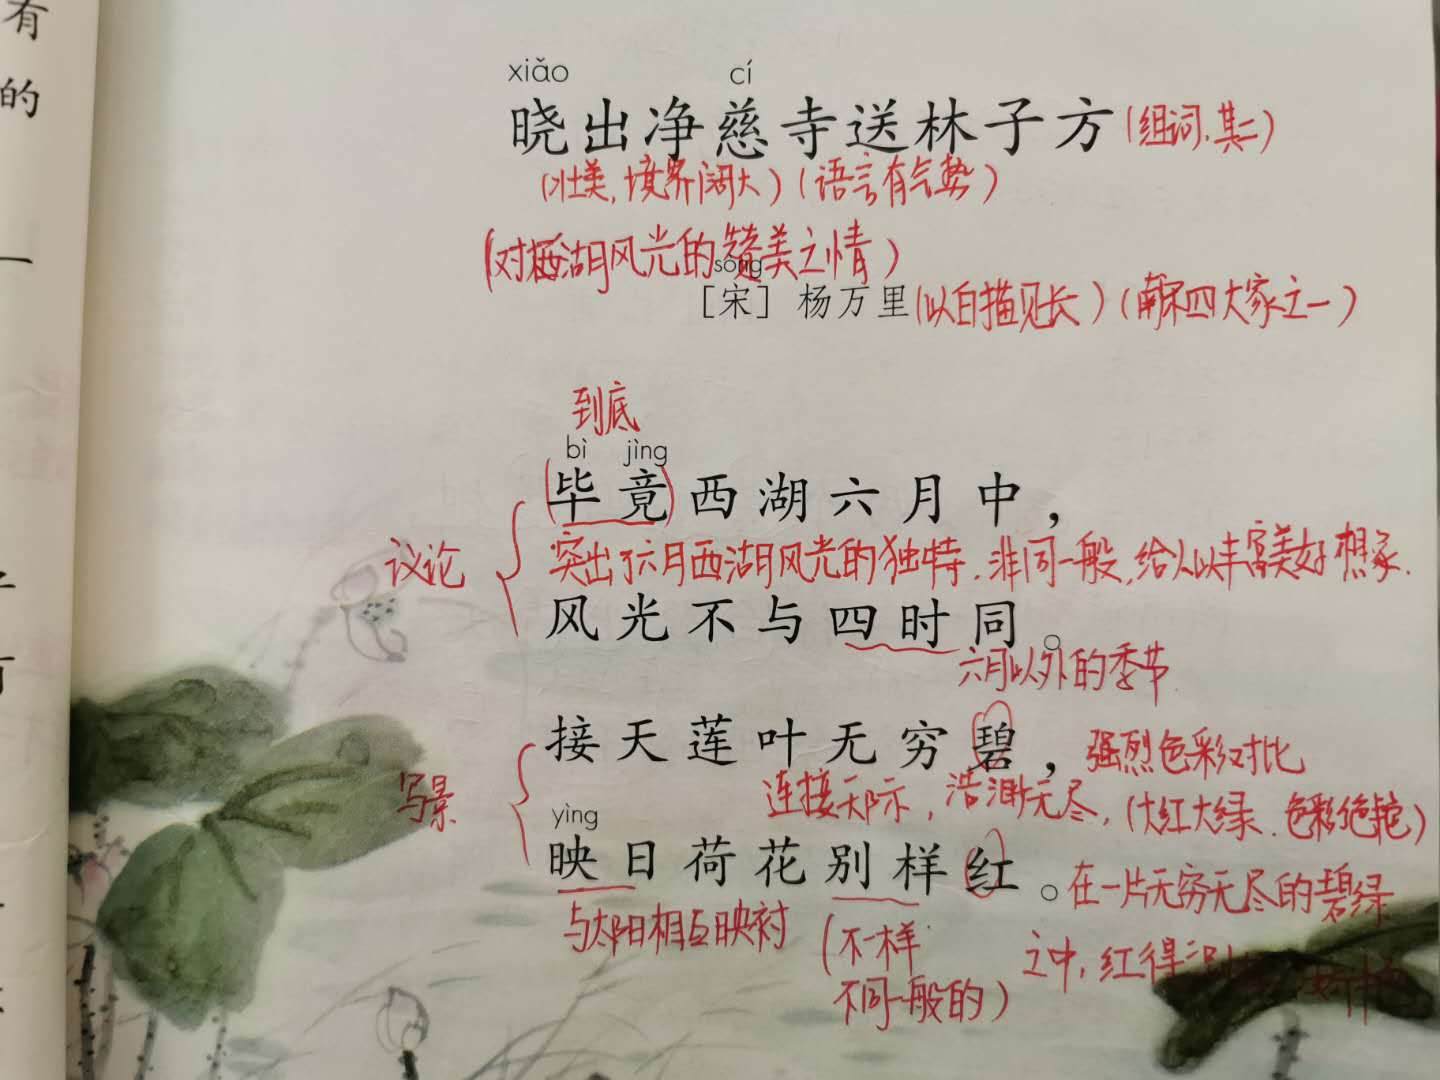 有
的
xiǎo cí
晓出净慈寺送林子方(组词.其二)
(壮美,境界阔大)(语言有气势)
(对西湖风光的赞美之情)
sòng
[宋] 杨万里(以白描见长)(南宋四大家之一)
到底
bì jìng
(毕竟)西湖六月中,
议论
突出了六月西湖风光的独特.非同一般,给人以丰富美好想象.
风光不与四时同。
六月以外的季节
接天莲叶无穷碧,强烈色彩对比
写景
连接天际,浩渺无尽,(大红大绿.色彩绝艳)
yìng
映日荷花别样红。在一片无穷无尽的碧绿
与太阳相互映衬 (不一样 之中,红得
不同一般的)